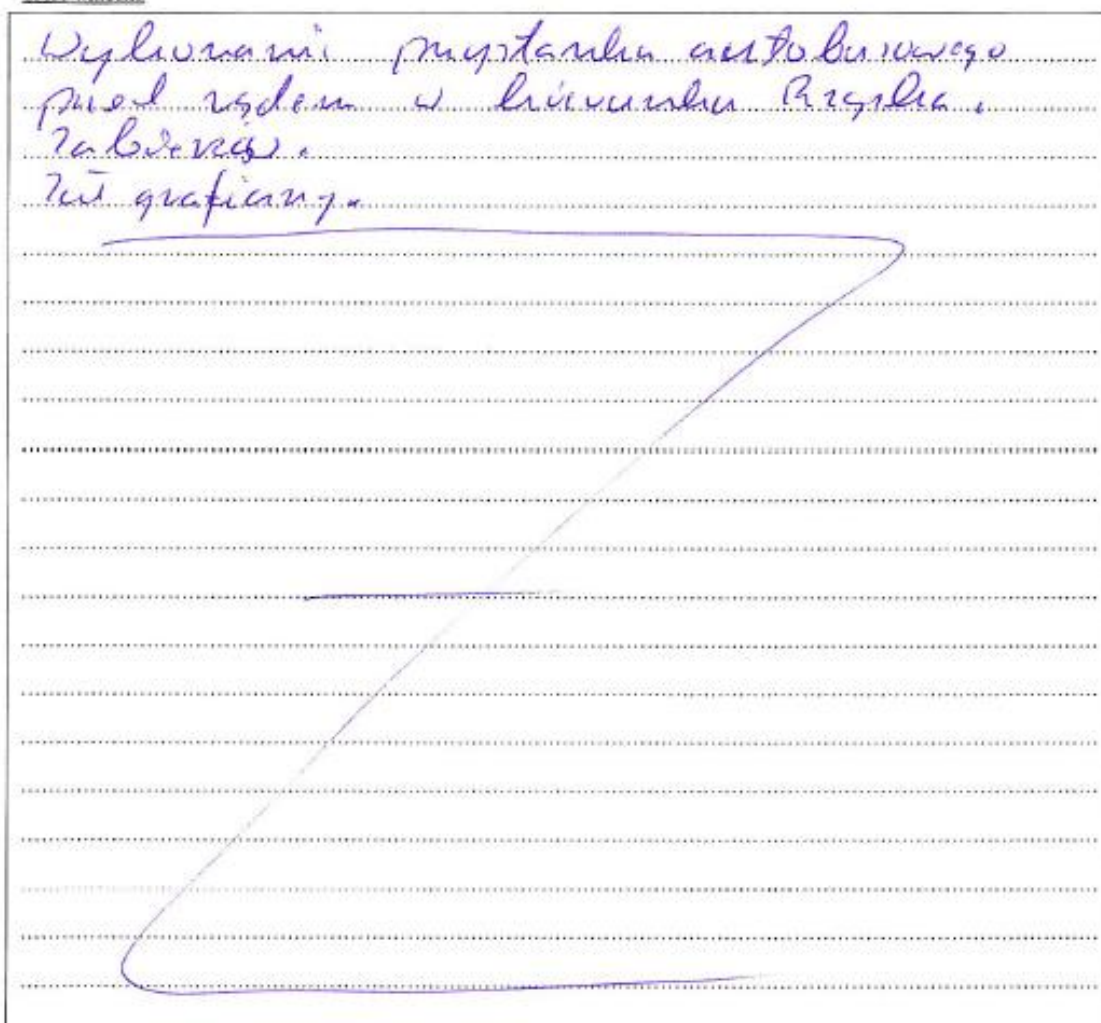 Wykonanie przystanku autobusowego
przed sądem w kierunku Rząska.
Zabierzów.
Zał graficzny.